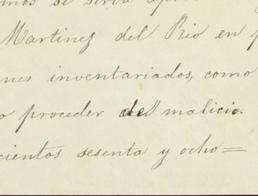 mos se sirva
Martinez del Rio en p
nes inventariados, como
o proceder de malicia.
cientos sesenta y ocho=